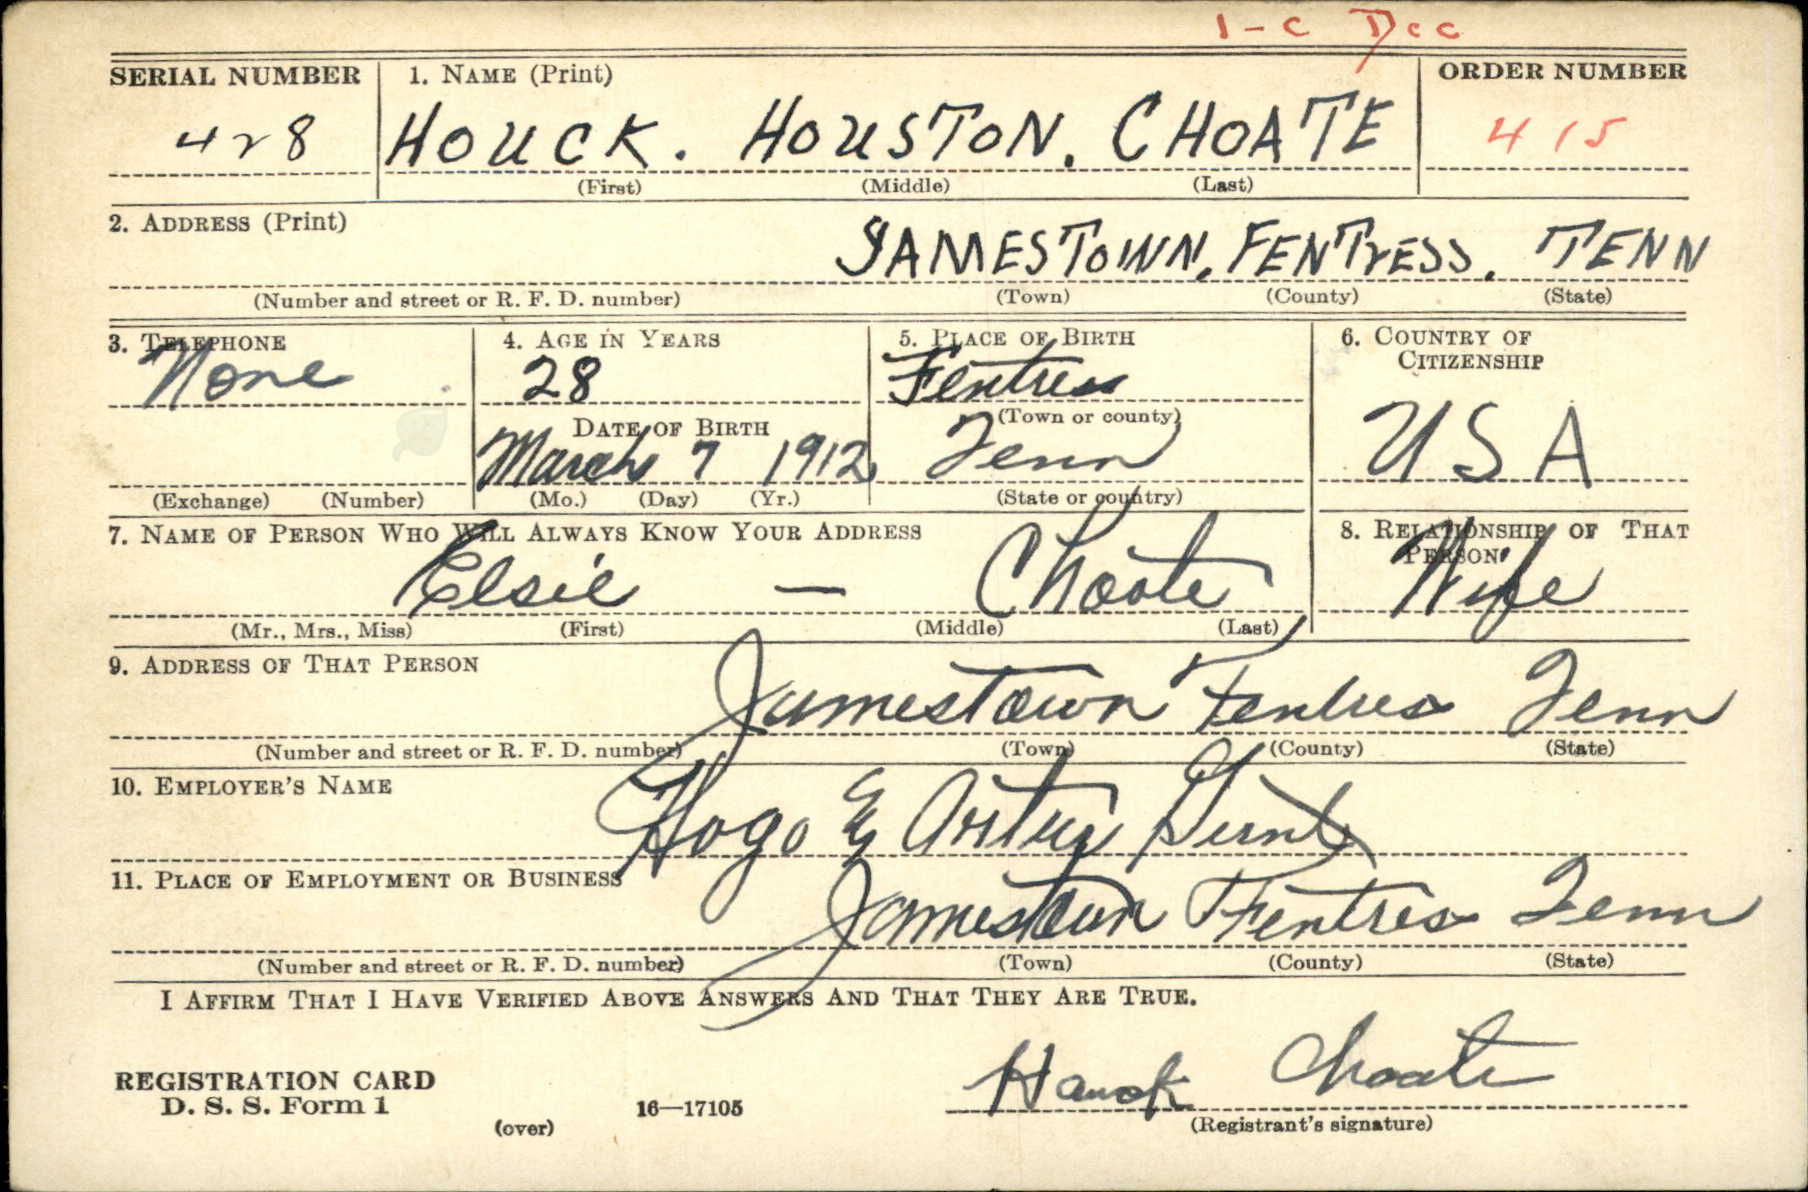 1-C Dec
SERIAL NUMBER 1. NAME (Print) ORDER NUMBER
428 HOUCK. HOUSTON. CHOATE 415
(First) (Middle) (Last)
2. ADDRESS (Print)
JAMESTOWN, FENTRESS. TENN
(Number and street or R. F. D. number) (Town) (County) (State)
3. TELEPHONE 4. AGE IN YEARS 5. PLACE OF BIRTH 6. COUNTRY OF
CITIZENSHIP
None 28 Fentress
(Town or county)
DATE OF BIRTH
March 7 1912 Tenn USA
(Exchange) (Number) (Mo.) (Day) (Yr.) (State or country)
7. NAME OF PERSON WHO WILL ALWAYS KNOW YOUR ADDRESS 8. RELATIONSHIP OF THAT
PERSON
Elsie — Choate Wife
(Mr., Mrs., Miss) (First) (Middle) (Last)
9. ADDRESS OF THAT PERSON
Jamestown Fentress Tenn
(Number and street or R. F. D. number) (Town) (County) (State)
10. EMPLOYER'S NAME
&
11. PLACE OF EMPLOYMENT OR BUSINESS
Jamestown Fentress Tenn
(Number and street or R. F. D. number) (Town) (County) (State)
I AFFIRM THAT I HAVE VERIFIED ABOVE ANSWERS AND THAT THEY ARE TRUE.
Houck Choate
REGISTRATION CARD
D. S. S. Form 1 16—17105
(over) (Registrant's signature)